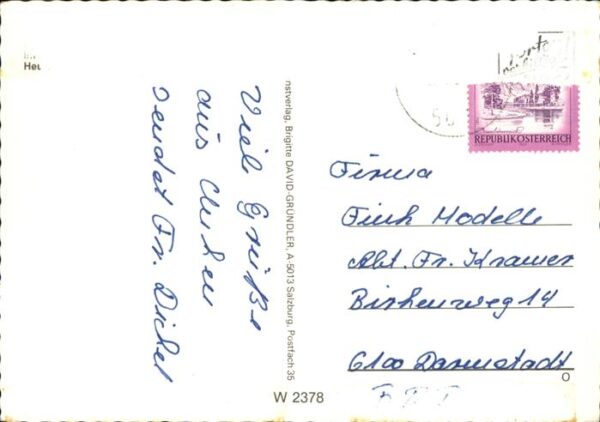 Heu
Viele Grüße
aus
sendet Fr. Dickel
nstverlag, Brigitte DAVID-GRÜNDLER, A-5013 Salzburg, Postfach 35
W 2378
56
REPUBLIK ÖSTERREICH
Firma
Fink Modelle
Abt. Fr. Kramer
Birkenweg 14
6100 Darmstadt